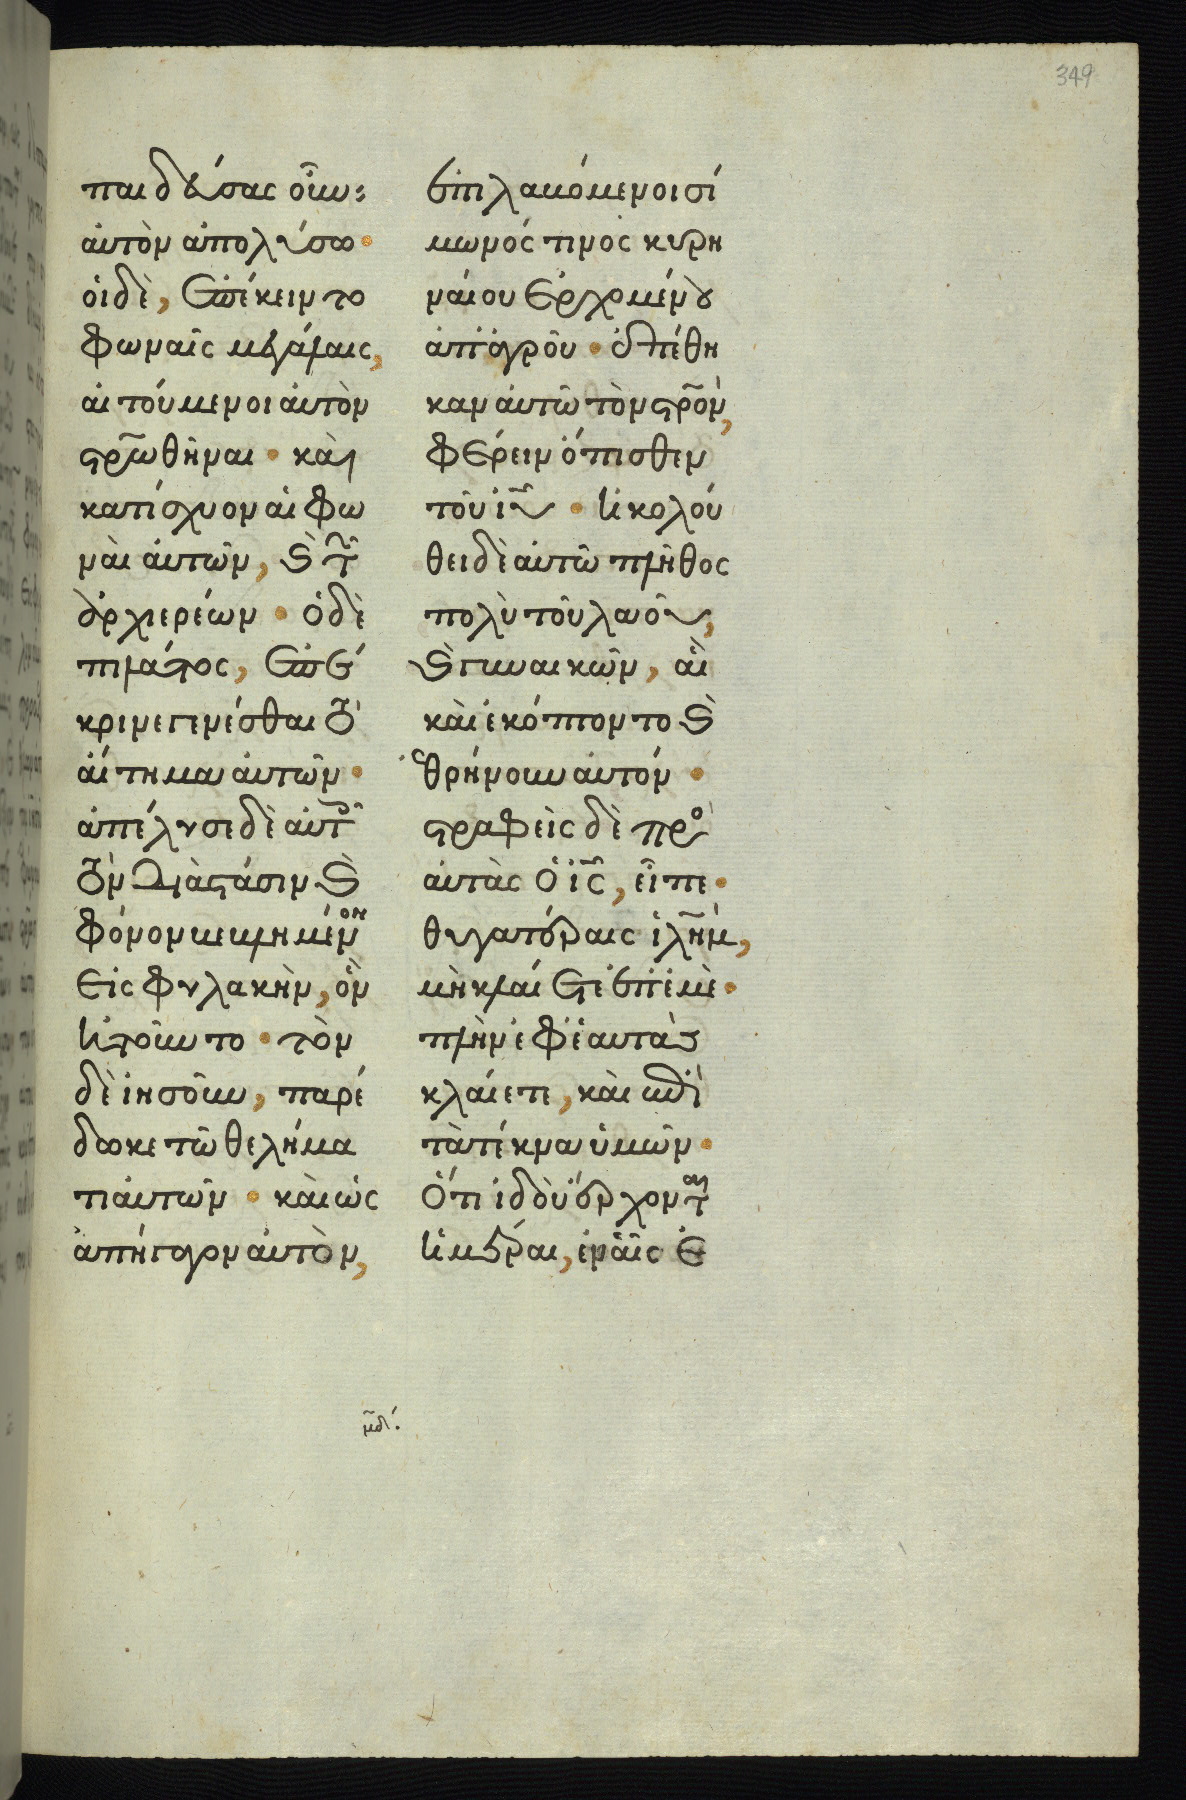 349
παιδεύσας οὖν
αὐτὸν ἀπολύσω·
οἱ δὲ, ἐπέκειντο
φωναῖς μεγάλαις,
αἰτούμενοι αὐτὸν
στρωθῆναι· καὶ
κατίσχυον αἱ φω
ναὶ αὐτῶν, καὶ τῶν
ἀρχιερέων· ὁ δὲ
πιλάτος, ἐπέ
κρινε γενέσθαι τὸ
αἴτημα αὐτῶν·
ἀπέλυσε δὲ αὐτοῖς
τὸν διὰ στάσιν καὶ
φόνον βεβλημένον
εἰς φυλακὴν, ὃν
ἠτοῦντο· τὸν
δὲ ἰησοῦν, παρέ
δωκε τῷ θελήμα
τι αὐτῶν· καὶ ὡς
ἀπήγαγον αὐτὸν,
ἐπιλαβόμενοι σί
μωνός τινος κυρη
ναίου ἐρχομένου
ἀπ' ἀγροῦ· ἐπέθη
καν αὐτῷ τὸν στρον,
φέρειν ὄπισθεν
τοῦ ιυ· ἠκολού
θει δὲ αὐτῷ πλῆθος
πολὺ τοῦ λαοῦ,
καὶ γυναικῶν, αἳ
καὶ ἐκόπτοντο καὶ
ἐθρήνουν αὐτόν·
στραφεὶς δὲ πρὸς
αὐτὰς ὁ ις, εἶπε·
θυγατέραις ιλημ,
μὴ κλαίετε ἐπ' ἐμὲ·
πλὴν ἐφ' ἑαυτὰς
κλαίετε, καὶ ἐπὶ
τὰ τέκνα ὑμῶν·
ὅτι ἰδοὺ ἔρχονται
ἡμέραι, ἐν αἷς ἐ
μδ.